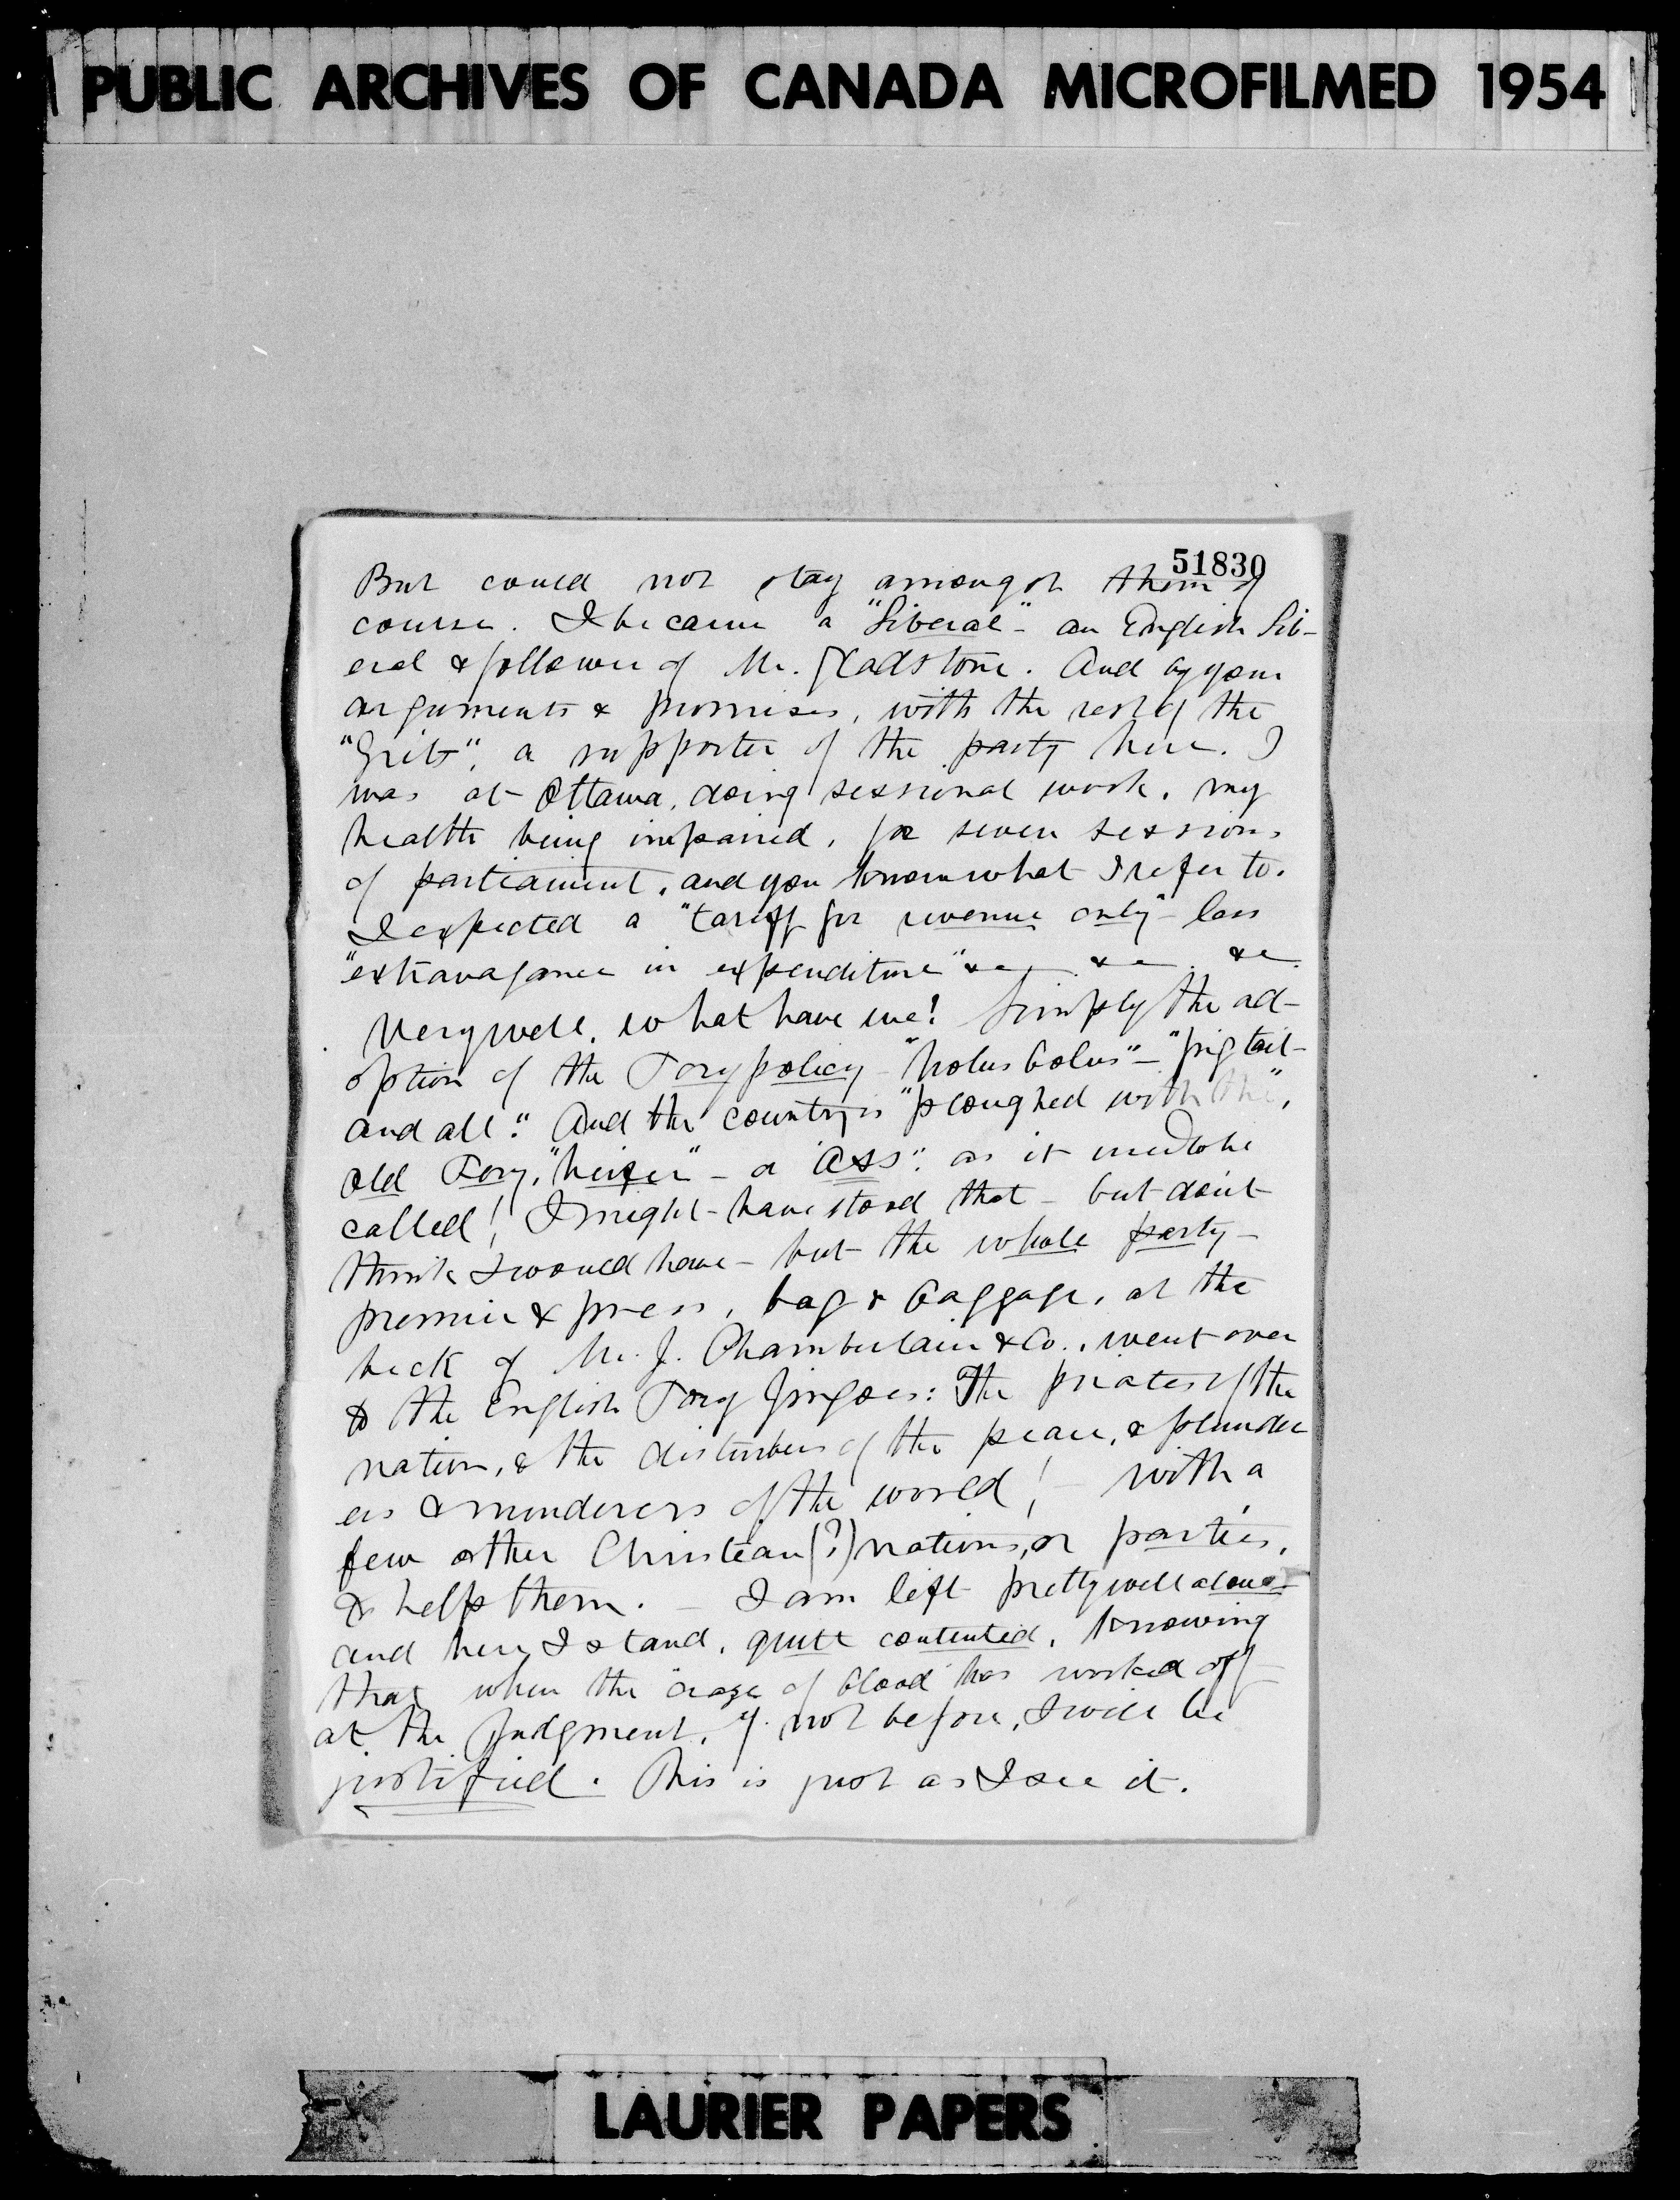 PUBLIC ARCHIVES OF CANADA MICROFILMED 1954
51830
But could not stay amongst them of
course. I became a "Liberal" - an English Lib-
eral & follower of Mr. Gladstone. And by your
arguments & promises, with the rest of the
"Grits", a supporter of the party here. I
was at Ottawa, doing sessional work, my
health being impaired, for seven sessions
of parliament, and you know what I refer to.
I expected a "tariff for revenue only" - less
"extravagance in expenditure" &c &c. &c.
Very well, what have we! Simply the ad-
option of the Tory policy - "holus bolus" - "pig tail -
and all." And the country is "ploughed with the",
old Tory, "heifer" - a "ass", as it used to be
called! I might have stood that - but don't
think I would have - but the whole party -
premier & press, bag & baggage, at the
beck of Mr. J. Chamberlain & Co., went over
to the English Tory Jingoes: The pirates of the
nation, & the disturbers of the peace, & plunder
ers & murderers of the world! - with a
few other Christian (?) nations, or parties,
to help them. - I am left pretty well alone -
and here I stand, quite contented, knowing
that when the craze of blood has worked off
at the Judgment, if not before, I will be
justified. This is just as I see it.
LAURIER PAPERS